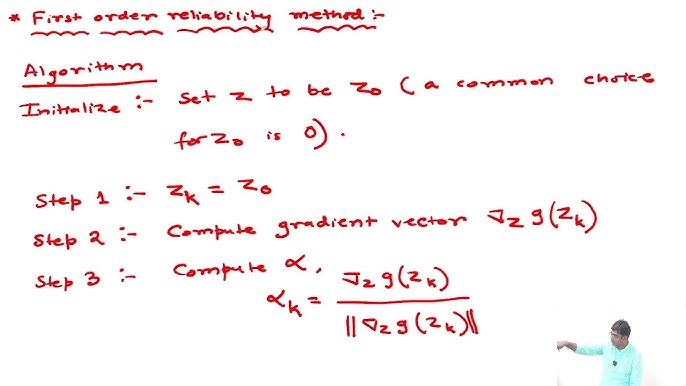 * First order reliability method :-
Algorithm
Initialize :- Set Z to be Z₀ (a common choice
for Z₀ is 0).
Step 1 :- Z_k = Z₀
Step 2 :- Compute gradient vector ∇_Z g(Z_k)
Step 3 :- Compute α,
α_k = ∇_Z g(Z_k) / ||∇_Z g(Z_k)||